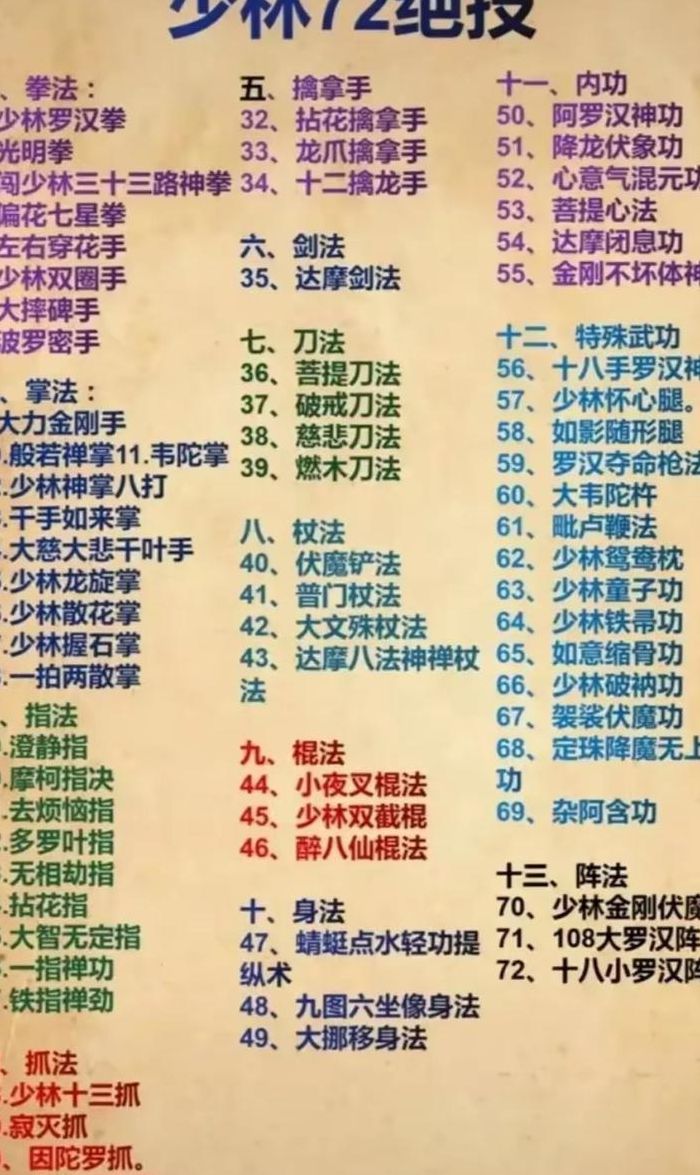 少林72绝技
、拳法：
少林罗汉拳
光明拳
闯少林三十三路神拳
偏花七星拳
左右穿花手
少林双圈手
大摔碑手
波罗密手
、掌法：
大力金刚手
.般若禅掌11.韦陀掌
.少林神掌八打
.千手如来掌
.大慈大悲千叶手
.少林龙旋掌
.少林散花掌
.少林握石掌
.一拍两散掌
、指法
.澄静指
.摩柯指决
.去烦恼指
.多罗叶指
.无相劫指
.拈花指
.大智无定指
.一指禅功
.铁指禅劲
、抓法
.少林十三抓
.寂灭抓
、因陀罗抓。
五、擒拿手
32、拈花擒拿手
33、龙爪擒拿手
34、十二擒龙手
六、剑法
35、达摩剑法
七、刀法
36、菩提刀法
37、破戒刀法
38、慈悲刀法
39、燃木刀法
八、杖法
40、伏魔铲法
41、普门杖法
42、大文殊杖法
43、达摩八法神禅杖
法
九、棍法
44、小夜叉棍法
45、少林双截棍
46、醉八仙棍法
十、身法
47、蜻蜓点水轻功提
纵术
48、九图六坐像身法
49、大挪移身法
十一、内功
50、阿罗汉神功
51、降龙伏象功
52、心意气混元功
53、菩提心法
54、达摩闭息功
55、金刚不坏体神
十二、特殊武功
56、十八手罗汉神
57、少林怀心腿。
58、如影随形腿
59、罗汉夺命枪法
60、大韦陀杵
61、毗卢鞭法
62、少林鸳鸯枕
63、少林童子功
64、少林铁帚功
65、如意缩骨功
66、少林破衲功
67、袈裟伏魔功
68、定珠降魔无上
功
69、杂阿含功
十三、阵法
70、少林金刚伏魔
71、108大罗汉阵
72、十八小罗汉阵